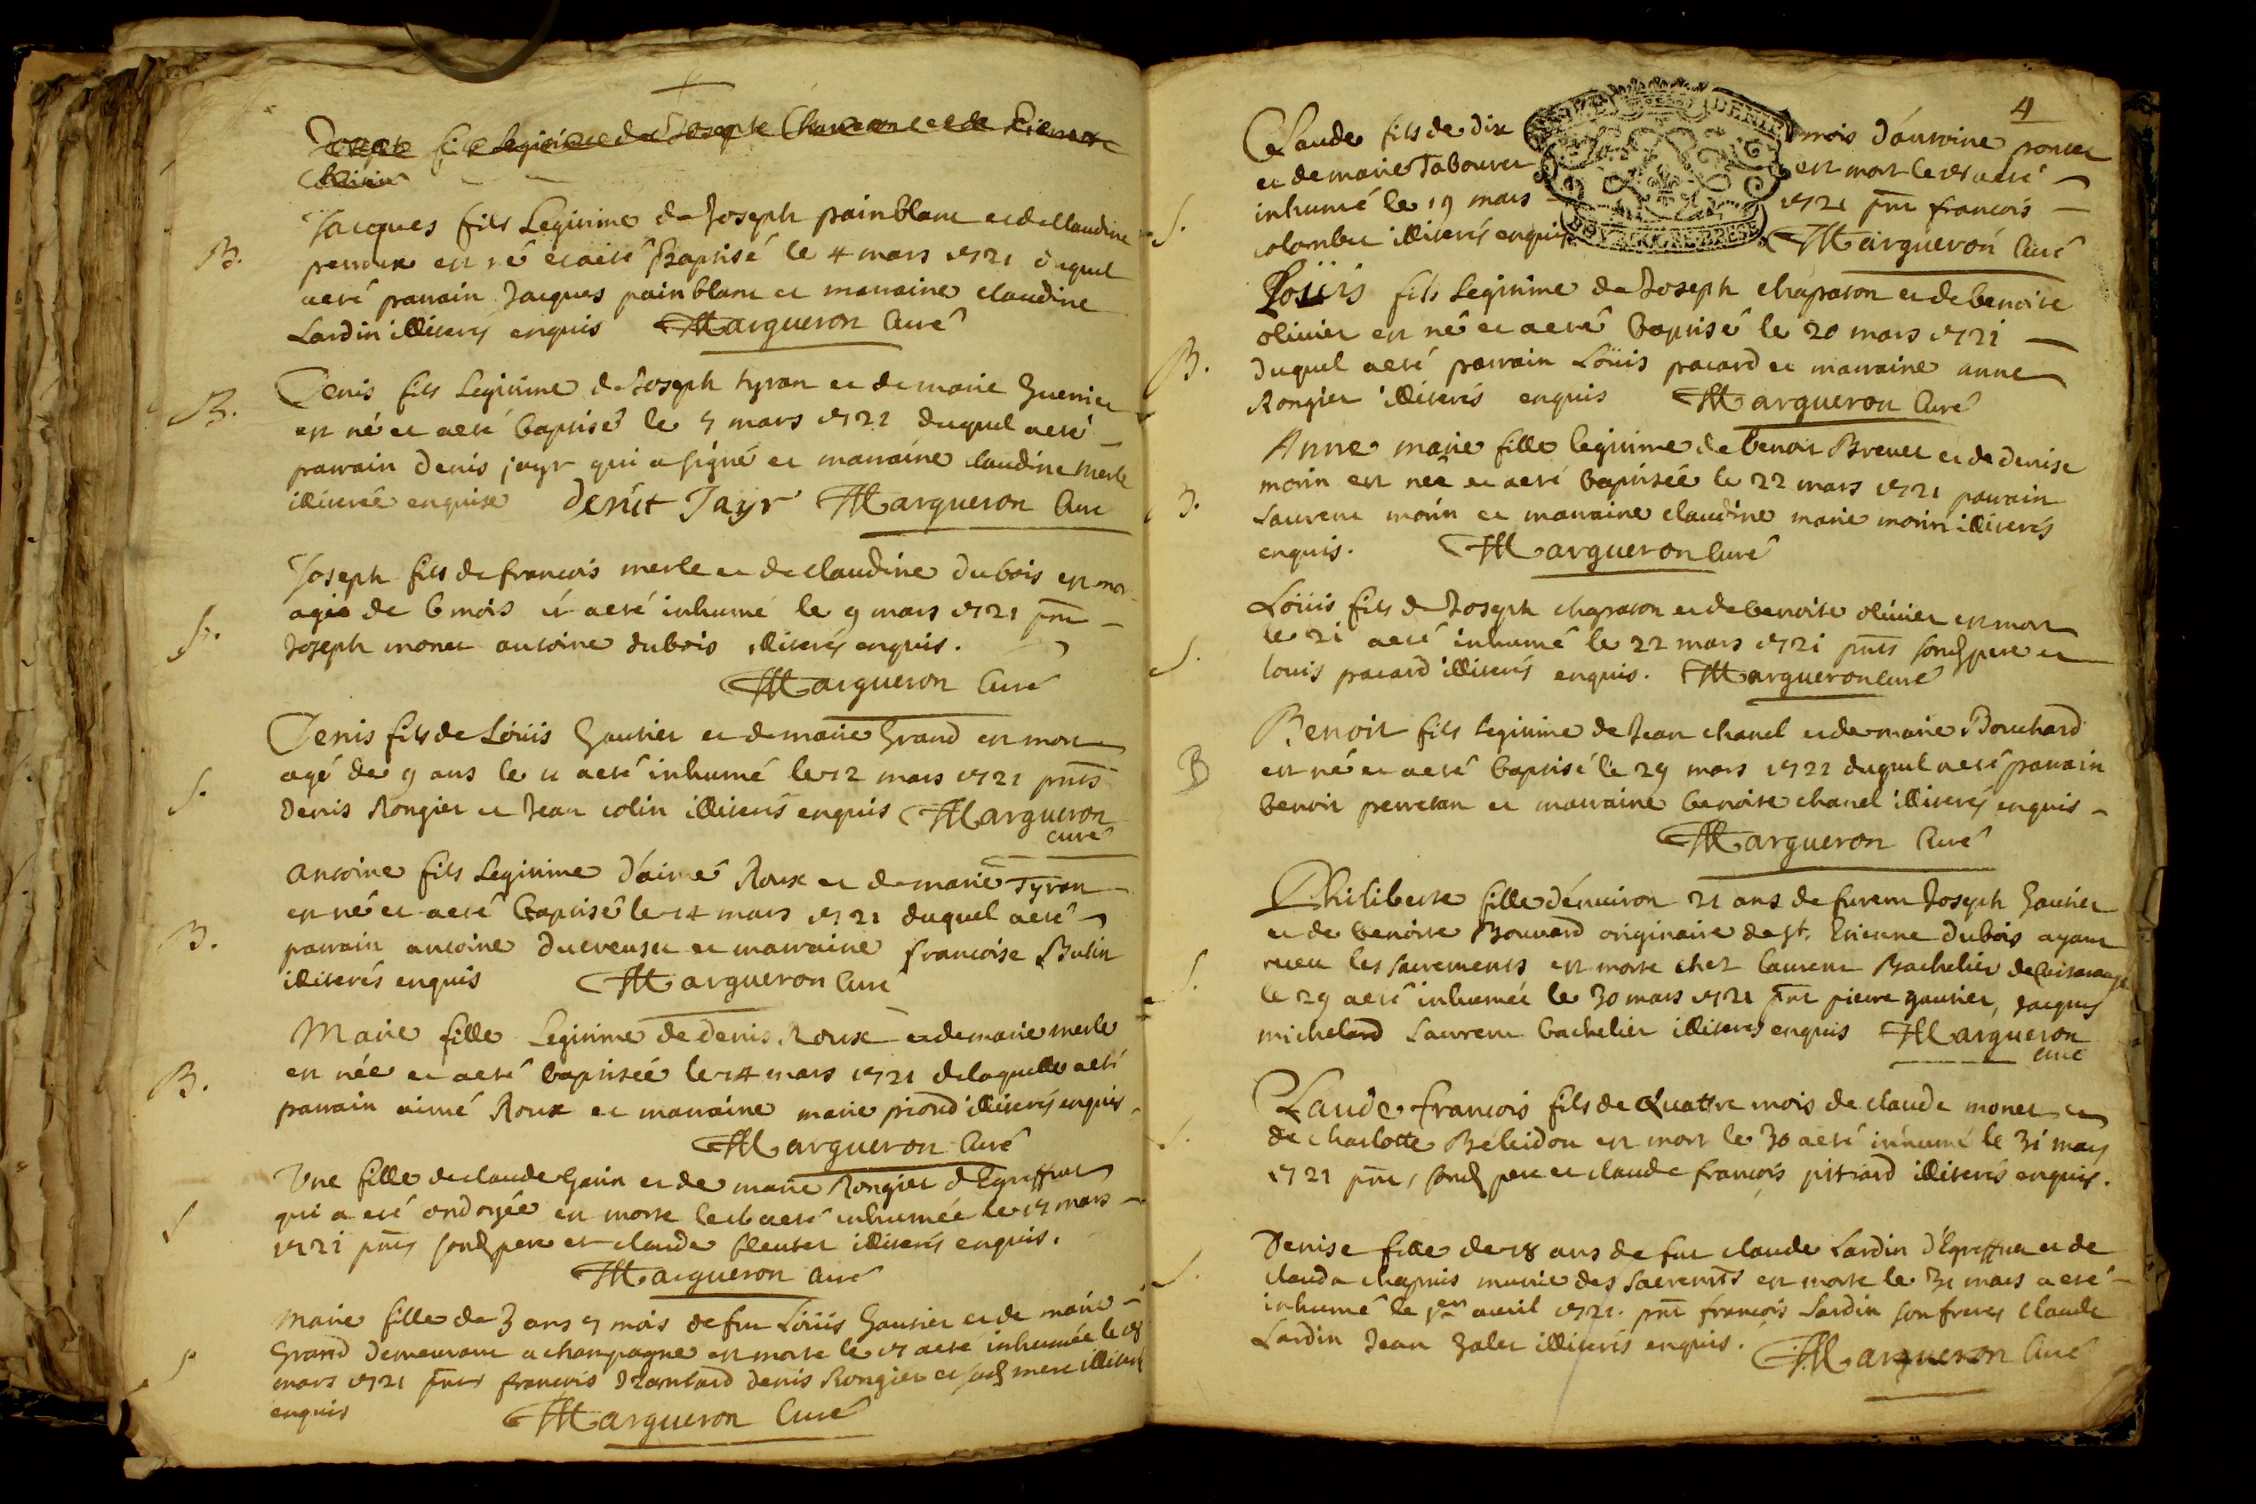 Joseph fils legitime de Joseph
Jacques fils Legitime de Joseph painblanc et de Claudine
perroux est né et a eté Baptisé le 4 mars 1721 duquel
a eté parrain Jacques painblanc et marraine claudine
Lardin illiterés enquis Margueron Curé
B.
Denis fils Legitime de Joseph tyran et de marie Guerrier
est né et a eté baptisé le 7 mars 1721 duquel a eté
parrain denis jayr qui a signé et marraine claudine merle
illiterée enquise denit Jayr Margueron Curé
B.
Joseph fils de francois merle et de claudine dubois est mor
agée de 6 mois et a eté inhumé le 9 mars 1721 pnt
Joseph monet antoine dubois illiterés enquis.
Margueron Curé
S.
Denis fils de Loüis Gautier et de marie Grand est mort
agé de 9 ans le 11 a eté inhumé le 12 mars 1721 pnts
denis Rongier et Jean colin illiterés enquis Margueron
curé
S.
antoine fils Legitime d'aimé Roux et de marie Tyran
est né et a eté baptisé le 14 mars 1721 duquel a eté
parrain antoine ducreuset et marraine francoise Butin
illiterés enquis Margueron Curé
B.
Marie fille Legitime de denis Roux et de marie merle
est née et a eté baptisée le 14 mars 1721 de laquelle a eté
parrain aimé Roux et marraine marie piond illiterés enquis
Margueron Curé
B.
Une fille de claude Garin et de marie Rongier d'Egreffiat
qui a eté ondoyée est morte le 16 a eté inhumée le 17 mars
1721 pnts sond pere et claude illiterés enquis.
Margueron Curé
S
Marie fille de 3 ans 7 mois de feu Loüis Gautier et de marie
Grand demeurant a champagne est morte le 17 a eté inhumée le 18
mars 1721 pnts francois denis Rongier et sad mere illiterés
enquis Margueron Curé
S
4
Claude fils de dix mois d'antoine poncet
et de marie Tabouret est mort le 18 a eté
inhumé le 19 mars 1721 pnt francois
colombet illiterés enquis Margueron Curé
S.
Loüis fils Legitime de Joseph chaparon et de benoite
olivier est né et a eté baptisé le 20 mars 1721
duquel a eté parrain Loüis pacard et marraine anne
Rongier illiterés enquis Margueron Curé
B.
Anne marie fille legitime de benoit Brevet et de denise
morin est née et a eté baptisée le 22 mars 1721 parrain
Laurent morin et marraine claudine marie morin illiterés
enquis. Margueron Curé
B.
Loüis fils de Joseph chaparon et de benoite olivier est mort
le 21 a eté inhumé le 22 mars 1721 pnts sond pere et
louis pacard illiterés enquis. Margueron Curé
S.
Benoit fils legitime de Jean chanel et de marie Bouchard
est né et a eté baptisé le 29 mars 1721 duquel a eté parrain
benoit perretan et marraine benoite chanel illiterés enquis
Margueron Curé
B
Philiberte fille d'environ 21 ans de furent Joseph Gautier
et de benoite Bouvard originaire de st. Etienne dubois ayant
receu les sacrements est morte chez laurent Bachelier de
le 29 a eté inhumée le 30 mars 1721 pnt pierre gautier, Jacques
michelard Laurent bachelier illiterés enquis Margueron
curé
S.
Claude francois fils de Quattre mois de claude monet et
de charlotte Beleidou est mort le 30 a eté inhumé le 31 mars
1721 pnts, sond pere et claude francois pitiard illiterés enquis.
S.
Denise fille de 18 ans de feu claude Lardin d'Egreffiat et de
clauda chapuis munie des sacremts est morte le 31 mars a eté
inhumé le 1er avril 1721. pnt francois Lardin son frere, claude
Lardin Jean illiterés enquis. Margueron Curé
S.